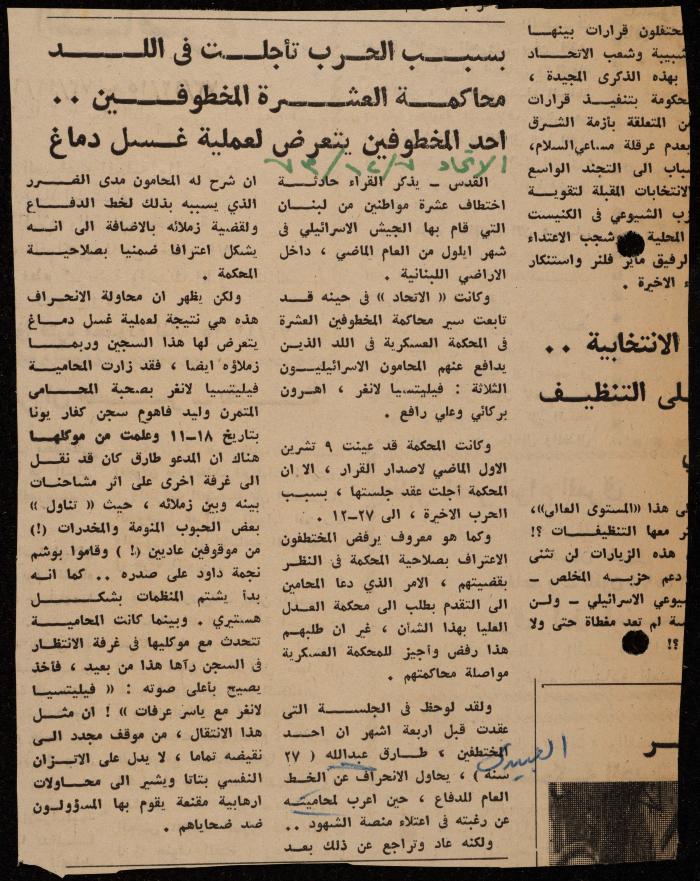 بسبب الحرب تأجلت فى اللد
محاكمة العشرة المخطوفين ..
احد المخطوفين يتعرض لعملية غسل دماغ
الاتحاد
القدس ــ يذكر القراء حادثة
اختطاف عشرة مواطنين من لبنان
التي قام بها الجيش الاسرائيلي فى
شهر ايلول من العام الماضي ، داخل
الاراضي اللبنانية .
وكانت « الاتحاد » فى حينه قد
تابعت سير محاكمة المخطوفين العشرة
فى المحكمة العسكرية فى اللد الذين
يدافع عنهم المحامون الاسرائيليون
الثلاثة : فيليتسيا لانغر ، اهرون
بركائي وعلي رافع .
وكانت المحكمة قد عينت ٩ تشرين
الاول الماضي لاصدار القرار ، الا ان
المحكمة أجلت عقد جلستها ، بسبب
الحرب الاخيرة ، الى ٢٧ــ١٢ .
وكما هو معروف يرفض المختطفون
الاعتراف بصلاحية المحكمة فى النظر
بقضيتهم ، الامر الذي دعا المحامين
الى التقدم بطلب الى محكمة العدل
العليا بهذا الشأن ، غير ان طلبهم
هذا رفض وأجيز للمحكمة العسكرية
مواصلة محاكمتهم .
ولقد لوحظ فى الجلسة التى
عقدت قبل اربعة اشهر ان احد
المختطفين ، طارق عبدالله ( ٢٧
سنة ) ، يحاول الانحراف عن الخط
العام للدفاع ، حين اعرب لمحاميته
عن رغبته فى اعتلاء منصة الشهود ..
ولكنه عاد وتراجع عن ذلك بعد
ان شرح له المحامون مدى الضرر
الذي يسببه بذلك لخط الدفاع
ولقضية زملائه بالاضافة الى انه
يشكل اعترافا ضمنيا بصلاحية
المحكمة .
ولكن يظهر ان محاولة الانحراف
هذه هي نتيجة لعملية غسل دماغ
يتعرض لها هذا السجين وربما
زملاؤه ايضا ، فقد زارت المحامية
فيليتسيا لانغر بصحبة المحامى
المتمرن وليد فاهوم سجن كفار يونا
بتاريخ ١٨ــ١١ وعلمت من موكلها
هناك ان المدعو طارق كان قد نقل
الى غرفة اخرى على اثر مشاحنات
بينه وبين زملائه ، حيث « تناول »
بعض الحبوب المنومة والمخدرات (!)
من موقوفين عاديين (!) وقاموا بوشم
نجمة داود على صدره .. كما انه
بدأ يشتم المنظمات بشكل
هستيري . وبينما كانت المحامية
تتحدث مع موكليها فى غرفة الانتظار
فى السجن رآها هذا من بعيد ، فأخذ
يصيح بأعلى صوته : « فيليتسيا
لانغر مع ياسر عرفات » ! ان مثل
هذا الانتقال ، من موقف مجدد الى
نقيضه تماما ، لا يدل على الاتزان
النفسي بتاتا ويشير الى محاولات
ارهابية مقنعة يقوم بها المسؤولون
ضد ضحاياهم .
محتفلون قرارات بينها
شبيبة وشعب الاتحاد
بهذه الذكرى المجيدة ،
حكومة بتنفيذ قرارات
المتعلقة بأزمة الشرق
بعدم عرقلة مساعي السلام،
باب الى التجند الواسع
الانتخابات المقبلة لتقوية
زب الشيوعي فى الكنيست
المحلية وشجب الاعتداء
لرفيق ماير فلنر واستنكار
الاخيرة .
الانتخابية ..
لى التنظيف
ى هذا «المستوى العالى»،
ر معها التنظيفات ؟!
هذه الزيارات لن تثنى
دعم حزبه المخلص ــ
يوعي الاسرائيلى ــ ولن
سة لم تعد مغطاة حتى ولا
؟!
ـر